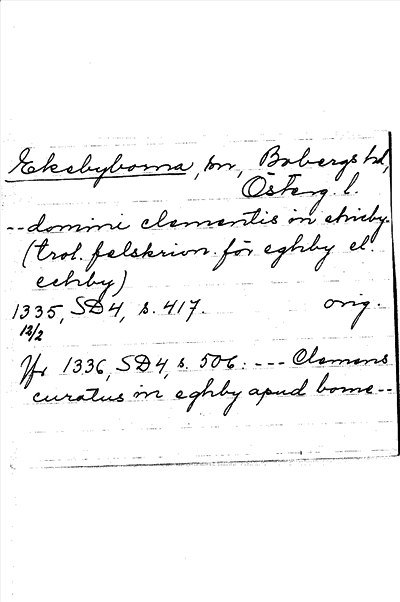 Ekebyborna, sn, Bobergs hd,
Österg. l.
-- domini clementis in ehieby.
(trol. felskrivn. för eghby el.
echby)
1335, SD4, s. 417. orig.
12/2
Jfr 1336, SD4, s. 506: --- Clemens
curatus in eghby apud bome --